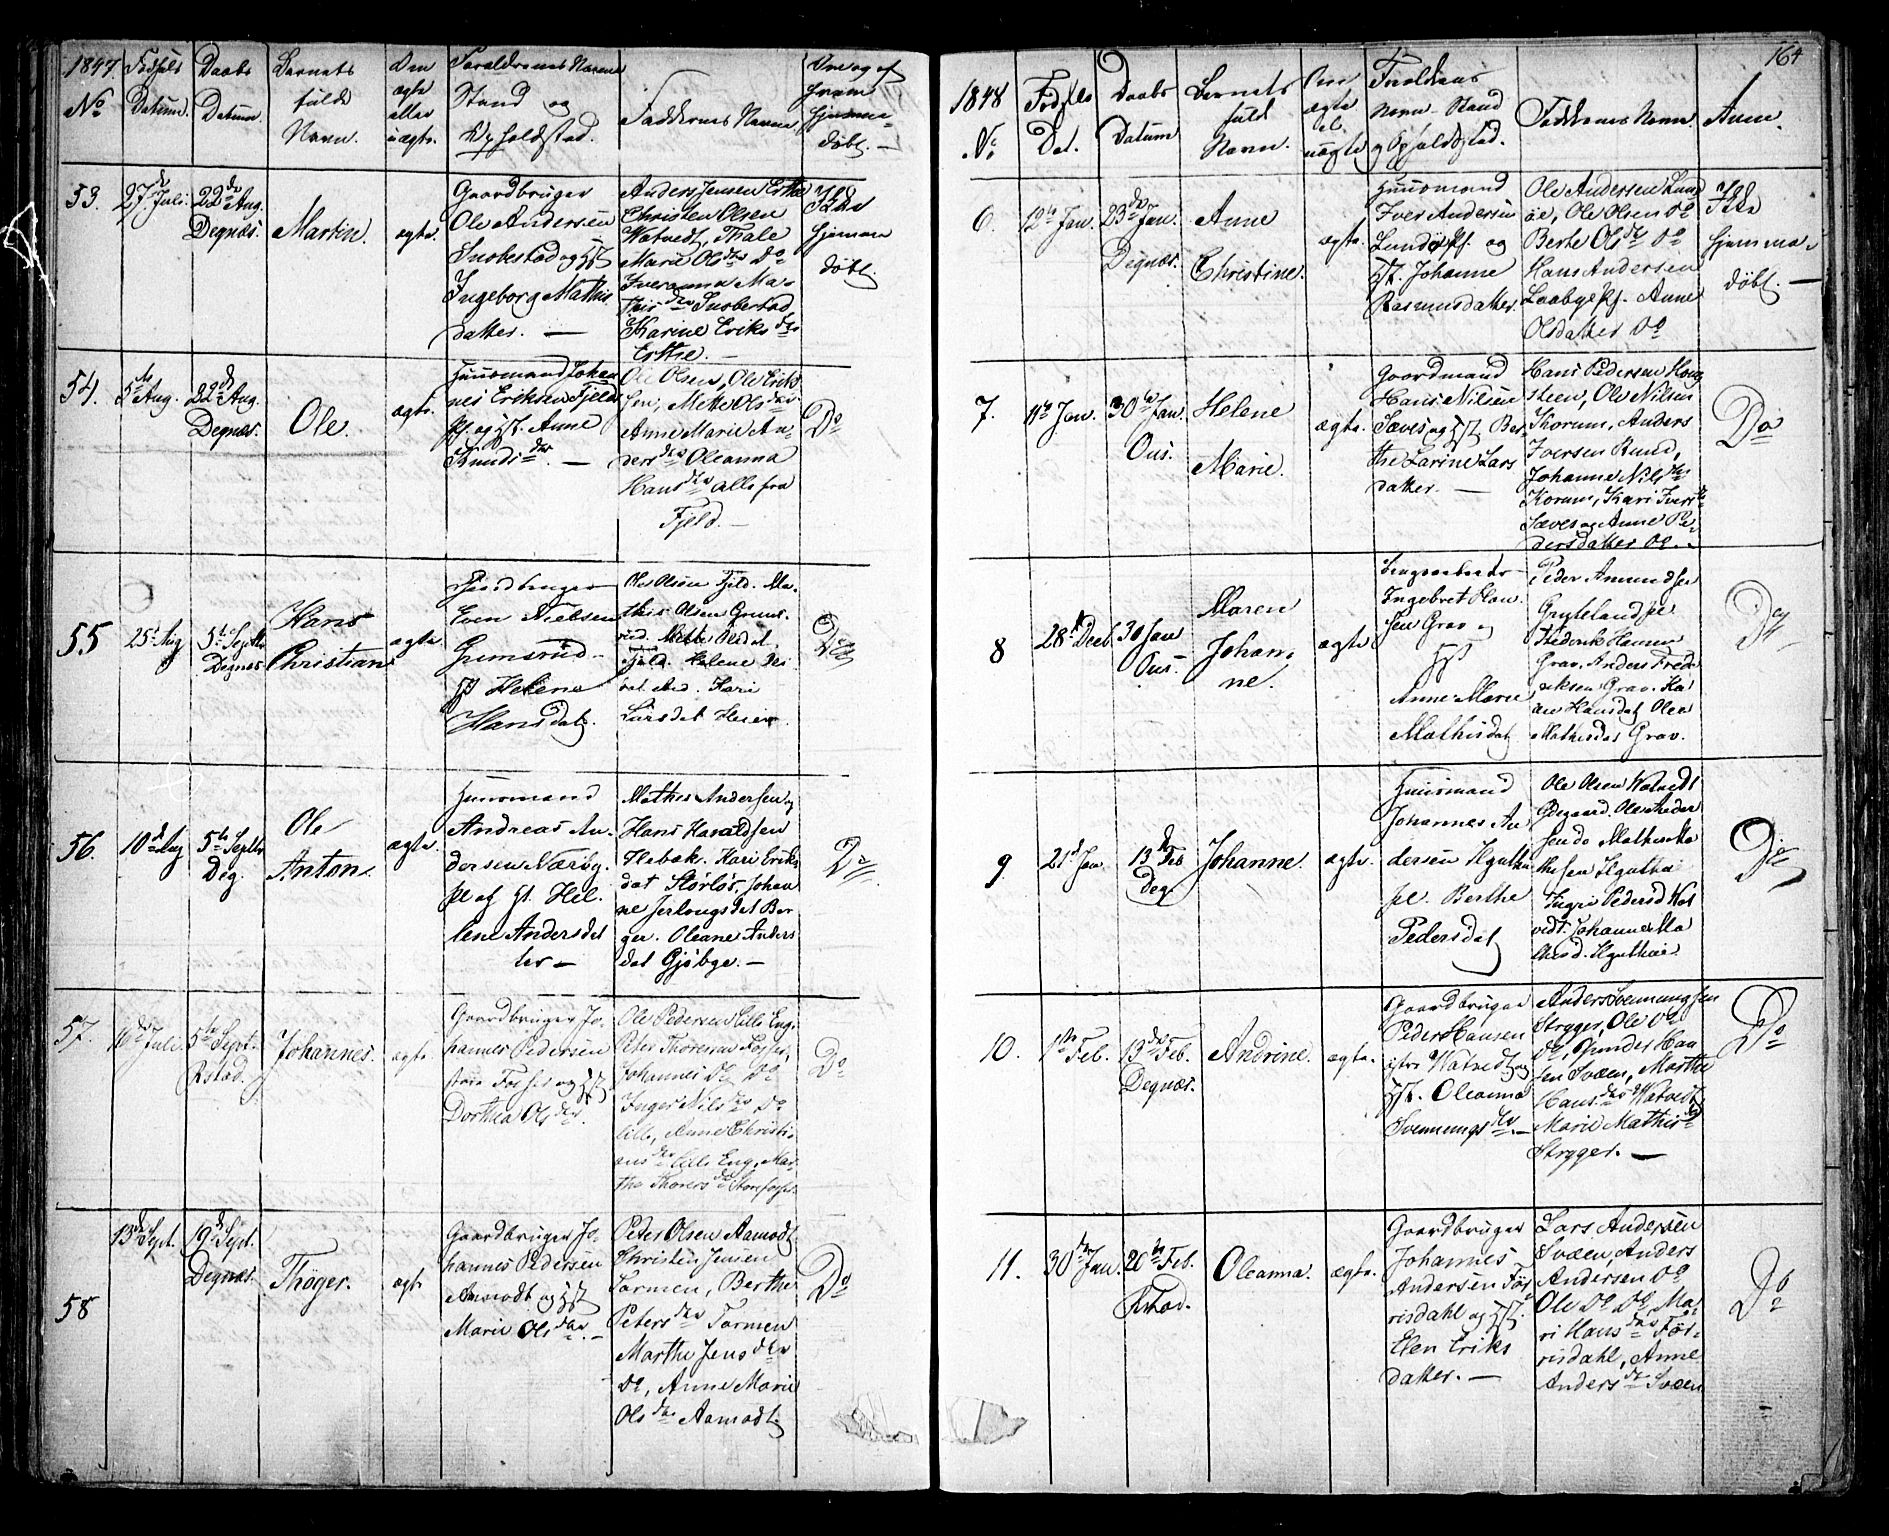 1847
No
Fødsels
Datum.
Daabs
Datum.
Barnets
fulde
Navn.
Om
ægte
eller
uægte.
Forældrenes Navne
Stand og
Opholdsstad.
Faddernes Navne.
Om og af
hvem
hjemme-
døbt. —
53.
27de Juli.
22de Aug.
Degnæs.
Martin.
ægte.
Gaardbruger
Ole Andersen
Snobestad og Hst
Ingeborg Mathis
datter. —
Anders Jensen
Christen Olsen
Watvedt, Thale
Marie Olsdtr Do
Iveranna Ma-
this dtr Snobestad
Karine Eriks dtr
Ikke
hjemme
døbt.
54.
5te Aug.
22de Aug.
Degnæs.
Ole.
ægte.
Huusmand Johan
nes Eriksen Fjeld
pl. og Hst. Anne
Knuds dtr. —
Ole Olsen, Ole Erik
sen, Mette Olsdtr
Anne Marie An-
ders dtr Oleanna
Hans dtr alle fra
Fjeld. —
Do
55
25d Aug
5te Septbr
Degnæs
Hans
Christian
ægte.
Gaardbruger
Even Nielsen
Grimsrud
Hst Helene
Hansdat.
Ole Olsen Fjeld. Ma-
this Olsen Grims-
rud. Mette Olsdat
Fjeld. Helene
Kari
Larsdat
Do
56.
10de Aug
5te Septbr
Deg.
Ole
Anton
ægte.
Huusmand
Andreas An-
dersen Nærby
pl og Hst. Hel-
lene Andersdat
ter —
Mathis Andersen og
Hans Haraldsen
Hebæk. Kari Eriks
dat Störlös. Johan
ne
ger. Oleane Anders
dat Gjöbye. —
Do
57.
16de Juli.
5te Sept.
Rstad.
Johannes.
ægte.
Gaardbruger Jo-
hannes Pedersen
Fosser og Hst
Dorthea Olsdtr.
Ole Pedersen Lille Eng.
Peter Thoresen
Johannes Do Do
Inger Nilsdtr Do
lille, Anne Christi-
ans dtr Lille Eng, Mar-
the Thores dtr
Do
58
13de Sept.
19de Sept.
Degnæs.
Thöger.
ægt.
Gaardbruger Jo-
hannes Pedersen
Aamodt og Hst
Marie Olsdtr. —
Peter Olsen Aamodt
Christen Jensen
Tormen, Berthe
Peters dtr Tormen
Marthe Jens dtr
Do, Anne Marie
Ols dtr Aamodt
Do
164
1848
No.
Fødsels
Dat.
Daabs
Datum
Barnets
fuld
Navn.
Om
ægte
el.
uægte
Forældrenes
Navn. Stand
og Opholdsstad.
Faddernes Navn.
Anm.
6.
12te Jan.
23de Jan.
Degnæs.
Anne
Christine.
ægte.
Huusmand
Iver Andersen
Lundöe pl. og
Hst. Johanne
Rasmusdatter.
Ole Andersen Lund
öe, Ole Olsen Do
Berte Olsdtr Do
Hans Andersen
Laabye pl. Anne
Olsdatter Do
Ikke
hjemme-
døbt. —
7.
11te Jan.
30te Jan.
Ous.
Helene
Marie.
ægte.
Gaardmand
Hans Nilsen
Sæves og Hst Ber-
the Larine Lars
datter. —
Hans Pedersen Haug
steen, Ole Nilsen
Korum, Anders
Iversen Rund,
Johanne Nils dtr
Korum, Kari Ivers dtr
Sæves og Anne Pe-
dersdatter Do. -
Do
8
28de Decb.
30 Jan
Ous-
Maren
Johan-
ne.
ægte
Ingebret Han
sen Grav og
Hst
Anne Marie
Mathisdat
Peder Amundsen
Gryteland pl
Frederik Hansen
Grav. Anders Frede
riksen Grav. Ka
ren Hansdat Olea
Mathisdat Grav.
Do
9
21d Jan
13de Feb
Deg.
Johanne.
ægte.
Huusmand
Johannes An
dersen
pl. Berthe
Pedersdat
Ole Olsen Watvedt
Ödegaard. Ole Ander
sen do Mathis Ma
thisen
Ingri Pedersd Wat
vedt. Johanne Ma
thisd.
Do
10.
1ste Feb.
13de Feb.
Degnæs.
Andrine.
ægte.
Gaardbruger
Peder Hansen
östre Watvedt og
Hst. Oleanna
Svennungs dtr. —
Anders Svennungsen
Stryger, Ole Do
Do, Gunder Han
sen Svæen, Marthe
Hans dtr Watvedt
Marie Mathis dtr
Stryger. —
Do
11.
30te Jan.
20de Feb.
Rstad.
Oleanna.
ægte.
Gaardbruger
Johannes
Andersen Tör-
risdahl og Hst.
Elen Eriks
datter. —
Lars Andersen
Svæen, Anders
Andersen Do
Ole Do Do, Ma-
ri Hans dtr Tör-
risdahl, Anne
Anders dtr Svæen
Do